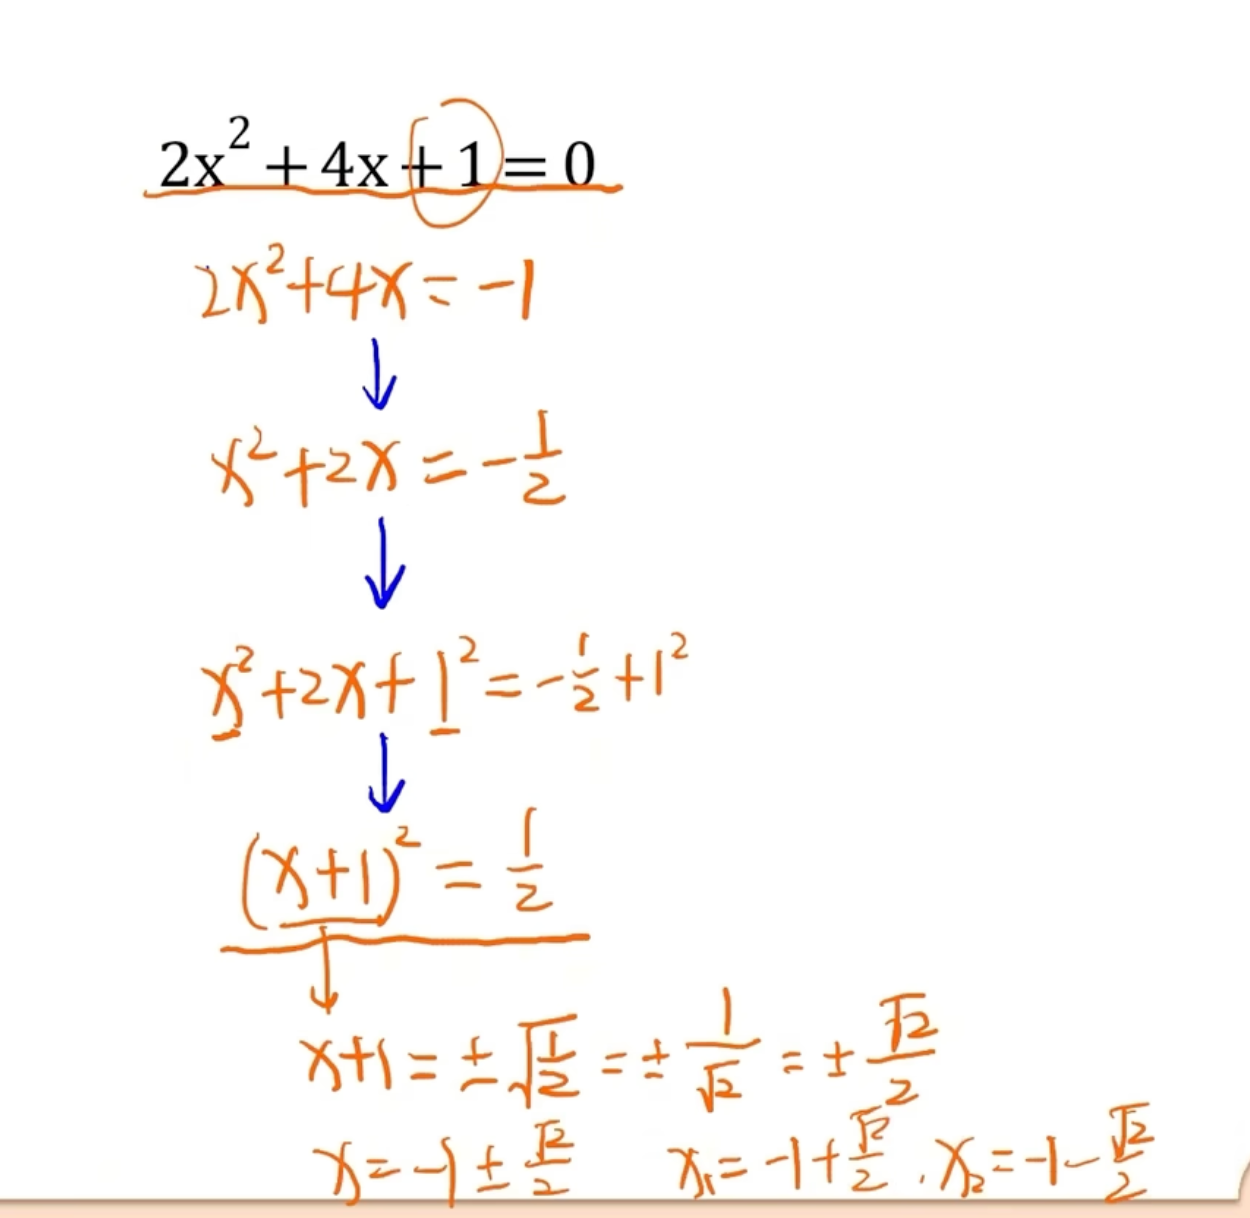 2x² + 4x + 1 = 0
2x²+4x = -1
x²+2x = -1/2
x²+2x+1² = -1/2+1²
(x+1)² = 1/2
x+1 = ±√(1/2) = ±1/√2 = ±√2/2
x = -1 ± √2/2    x₁ = -1+√2/2 , x₂ = -1-√2/2